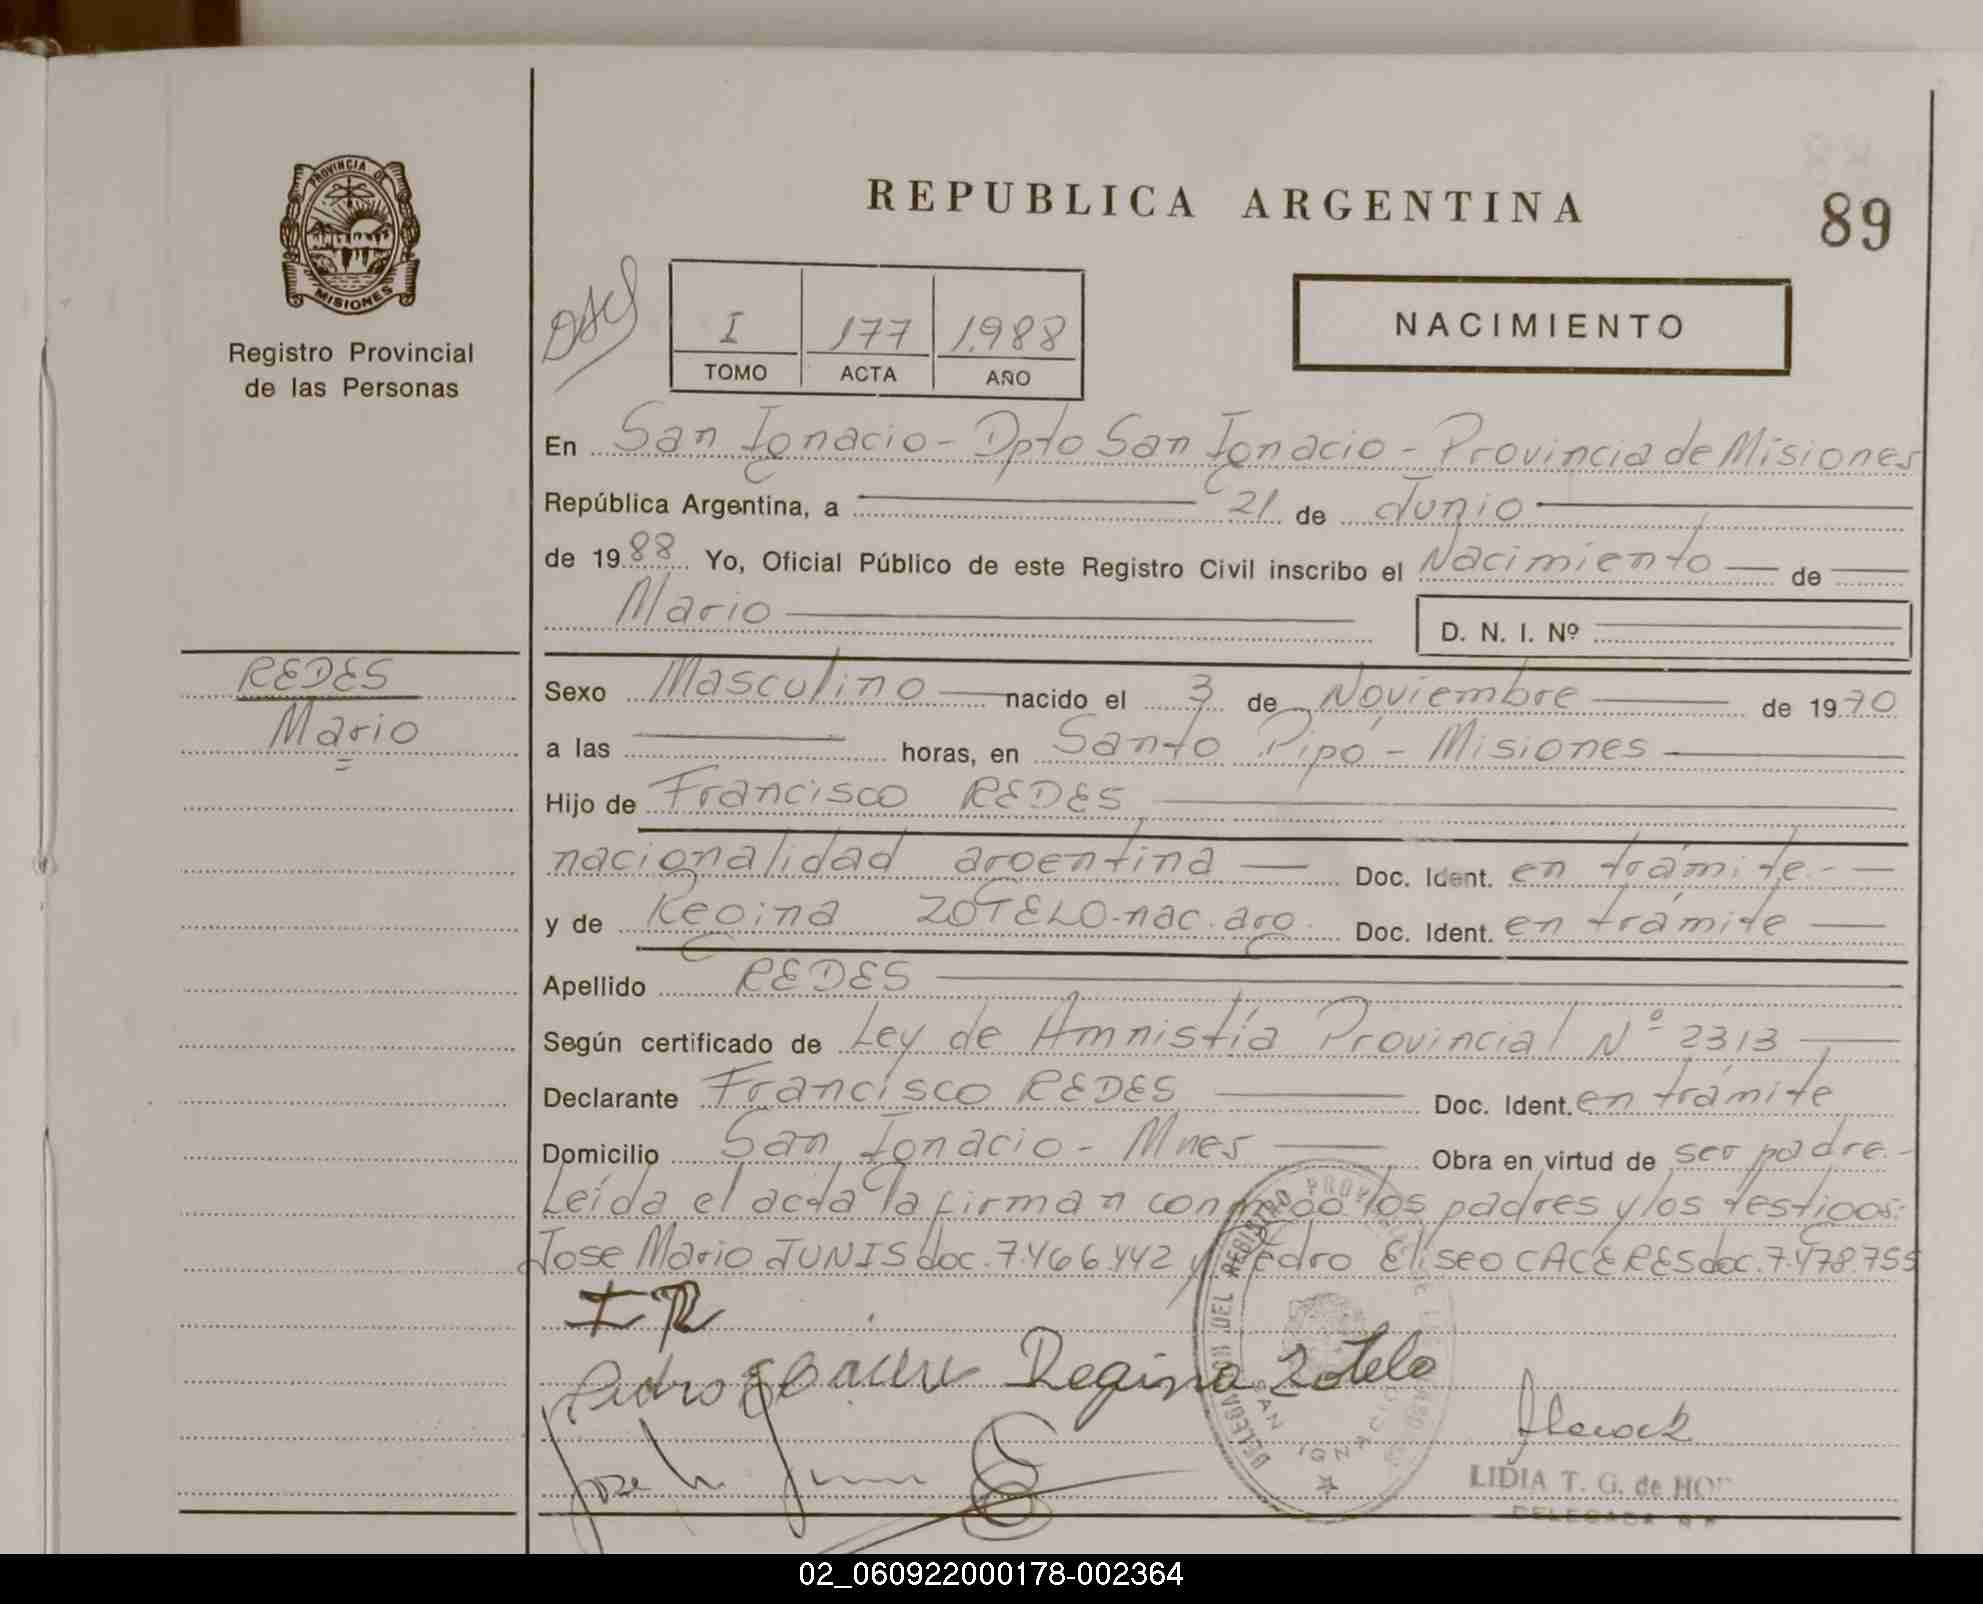 PROVINCIA DE
MISIONES
Registro Provincial
de las Personas
REPUBLICA ARGENTINA
89
I 177 1.988
TOMO ACTA AÑO
NACIMIENTO
En San Ignacio - Dpto San Ignacio - Provincia de Misiones
República Argentina, a 21 de Junio
de 1988 Yo, Oficial Público de este Registro Civil inscribo el Nacimiento de
Mario D. N. I. Nº
REDES
Mario
Sexo Masculino nacido el 3 de Noviembre de 1970
a las horas, en Santo Pipó - Misiones
Hijo de Francisco REDES
nacionalidad argentina Doc. Ident. en trámite.-
y de Regina ZOTELO-nac. arg. Doc. Ident. en trámite
Apellido REDES
Según certificado de Ley de Amnistía Provincial Nº 2313
Declarante Francisco REDES Doc. Ident. en trámite
Domicilio San Ignacio - Mnes Obra en virtud de ser padre.-
Leída el acta la firman conmigo los padres y los testigos:
Jose Mario JUNIS doc. 7.466.442 y Pedro Eliseo CACERES doc. 7.478.755
DELEGACION DEL REGISTRO
SAN IGNACIO
Regina Zotelo
Jose
LIDIA T. G. de
DELEGADA
02_060922000178-002364